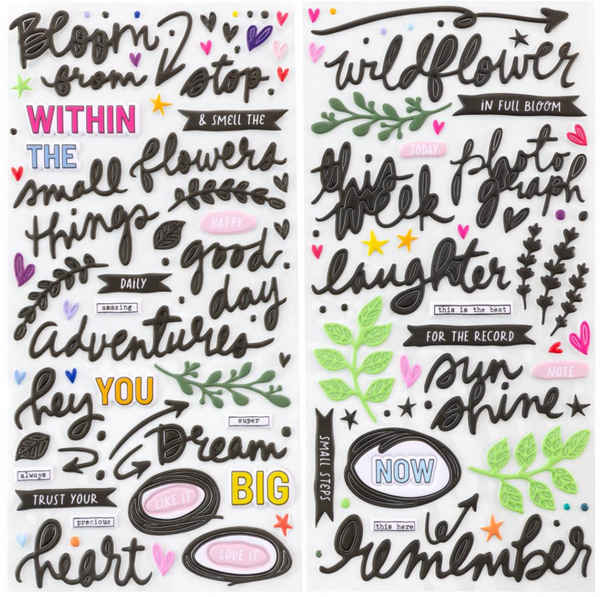 Bloom
from
stop.
WITHIN
& SMELL THE
THE
flowers
small
things
HAPPY
good
day
DAILY
amazing
Adventures
hey
YOU
super
Dream
BIG
always
TRUST YOUR
precious
LIKE IT
heart
LOVE IT
wildflower
IN FULL BLOOM
TODAY
this
week
photo
graph
laughter
this is the best
FOR THE RECORD
sun
shine
NOTE
SMALL STEPS
NOW
this here
remember